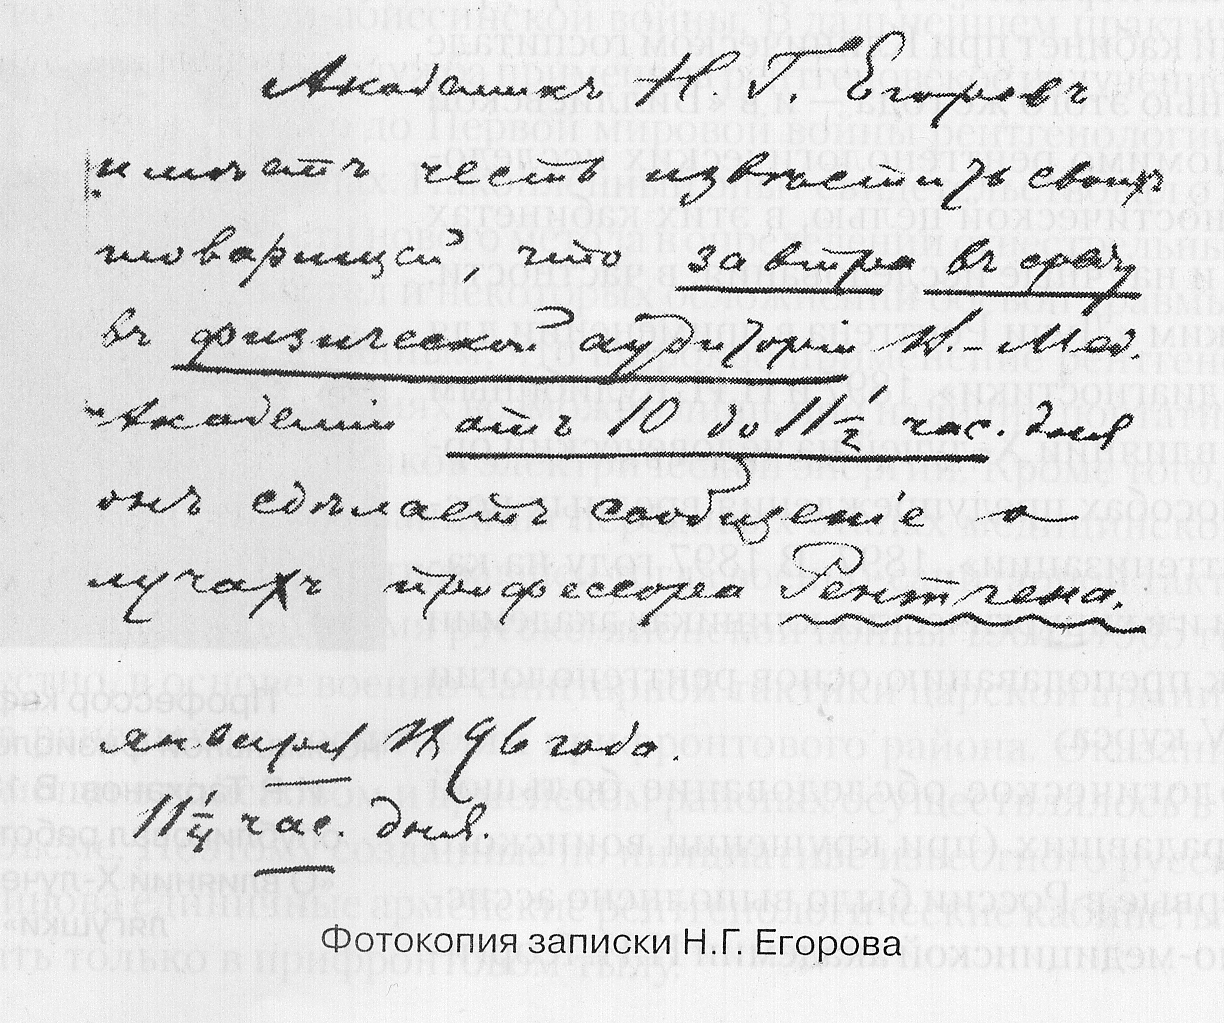 Академикъ Н. Г. Егоровъ
имѣетъ честь извѣстить своихъ
товарищей, что завтра въ среду
въ физической аудиторіи В.-Мед.
Академіи отъ 10 до 11 1/2 час. дня
онъ сдѣлаетъ сообщеніе о
лучахъ профессора Рентгена.
января 1896 года.
11 1/4 час. дня.
Фотокопия записки Н.Г. Егорова